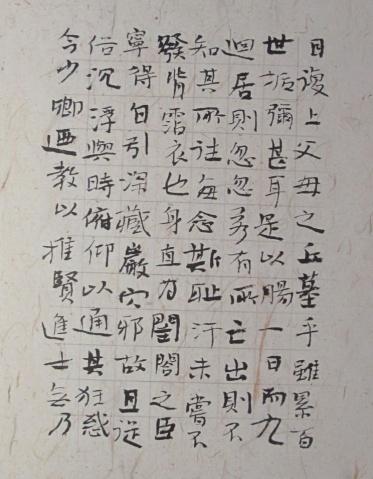 目復上父母之丘墓乎雖累百
世垢彌甚耳是以腸一日而九
迴居則忽忽若有所亡出則不
知其所往每念斯耻汗未嘗不
發背霑衣也身直為閨閤之臣
寧得自引深藏巖穴邪故且從
俗沉浮與時俯仰以通其狂惑
今少卿迺教以推賢進士無乃